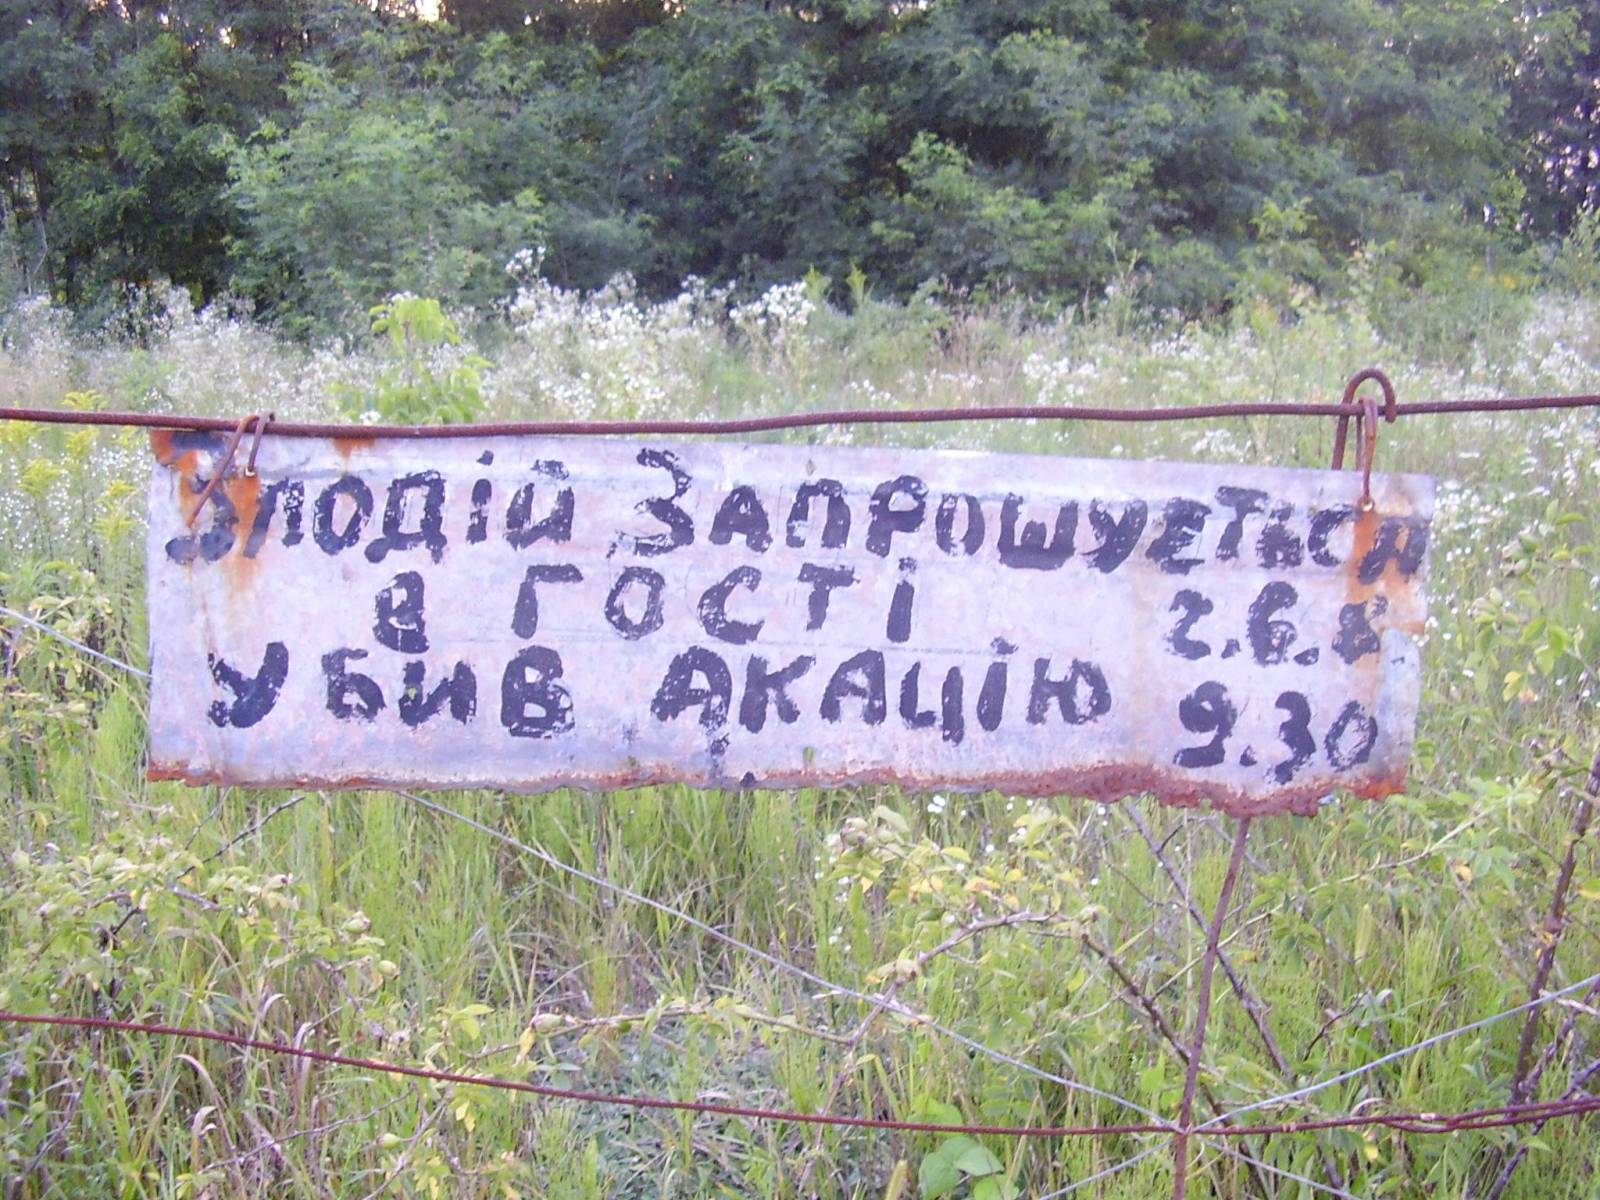 Злодій Запрошується
в гості 2.6.8
Убив Акацію 9.30